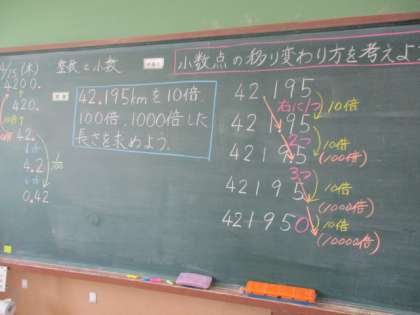 4/15(木)
整数と小数
小数点の移り変わり方を考えよ
4200.
420.
10倍
42.
4.2
1/100
0.42
42.195kmを10倍、
100倍、1000倍した
長さを求めよう。
42.195
右に1つ
10倍
42 1.95
2つ
10倍
(100倍)
42 19.5
3つ
10倍
(1000倍)
42 195
10倍
(10000倍)
42 1950